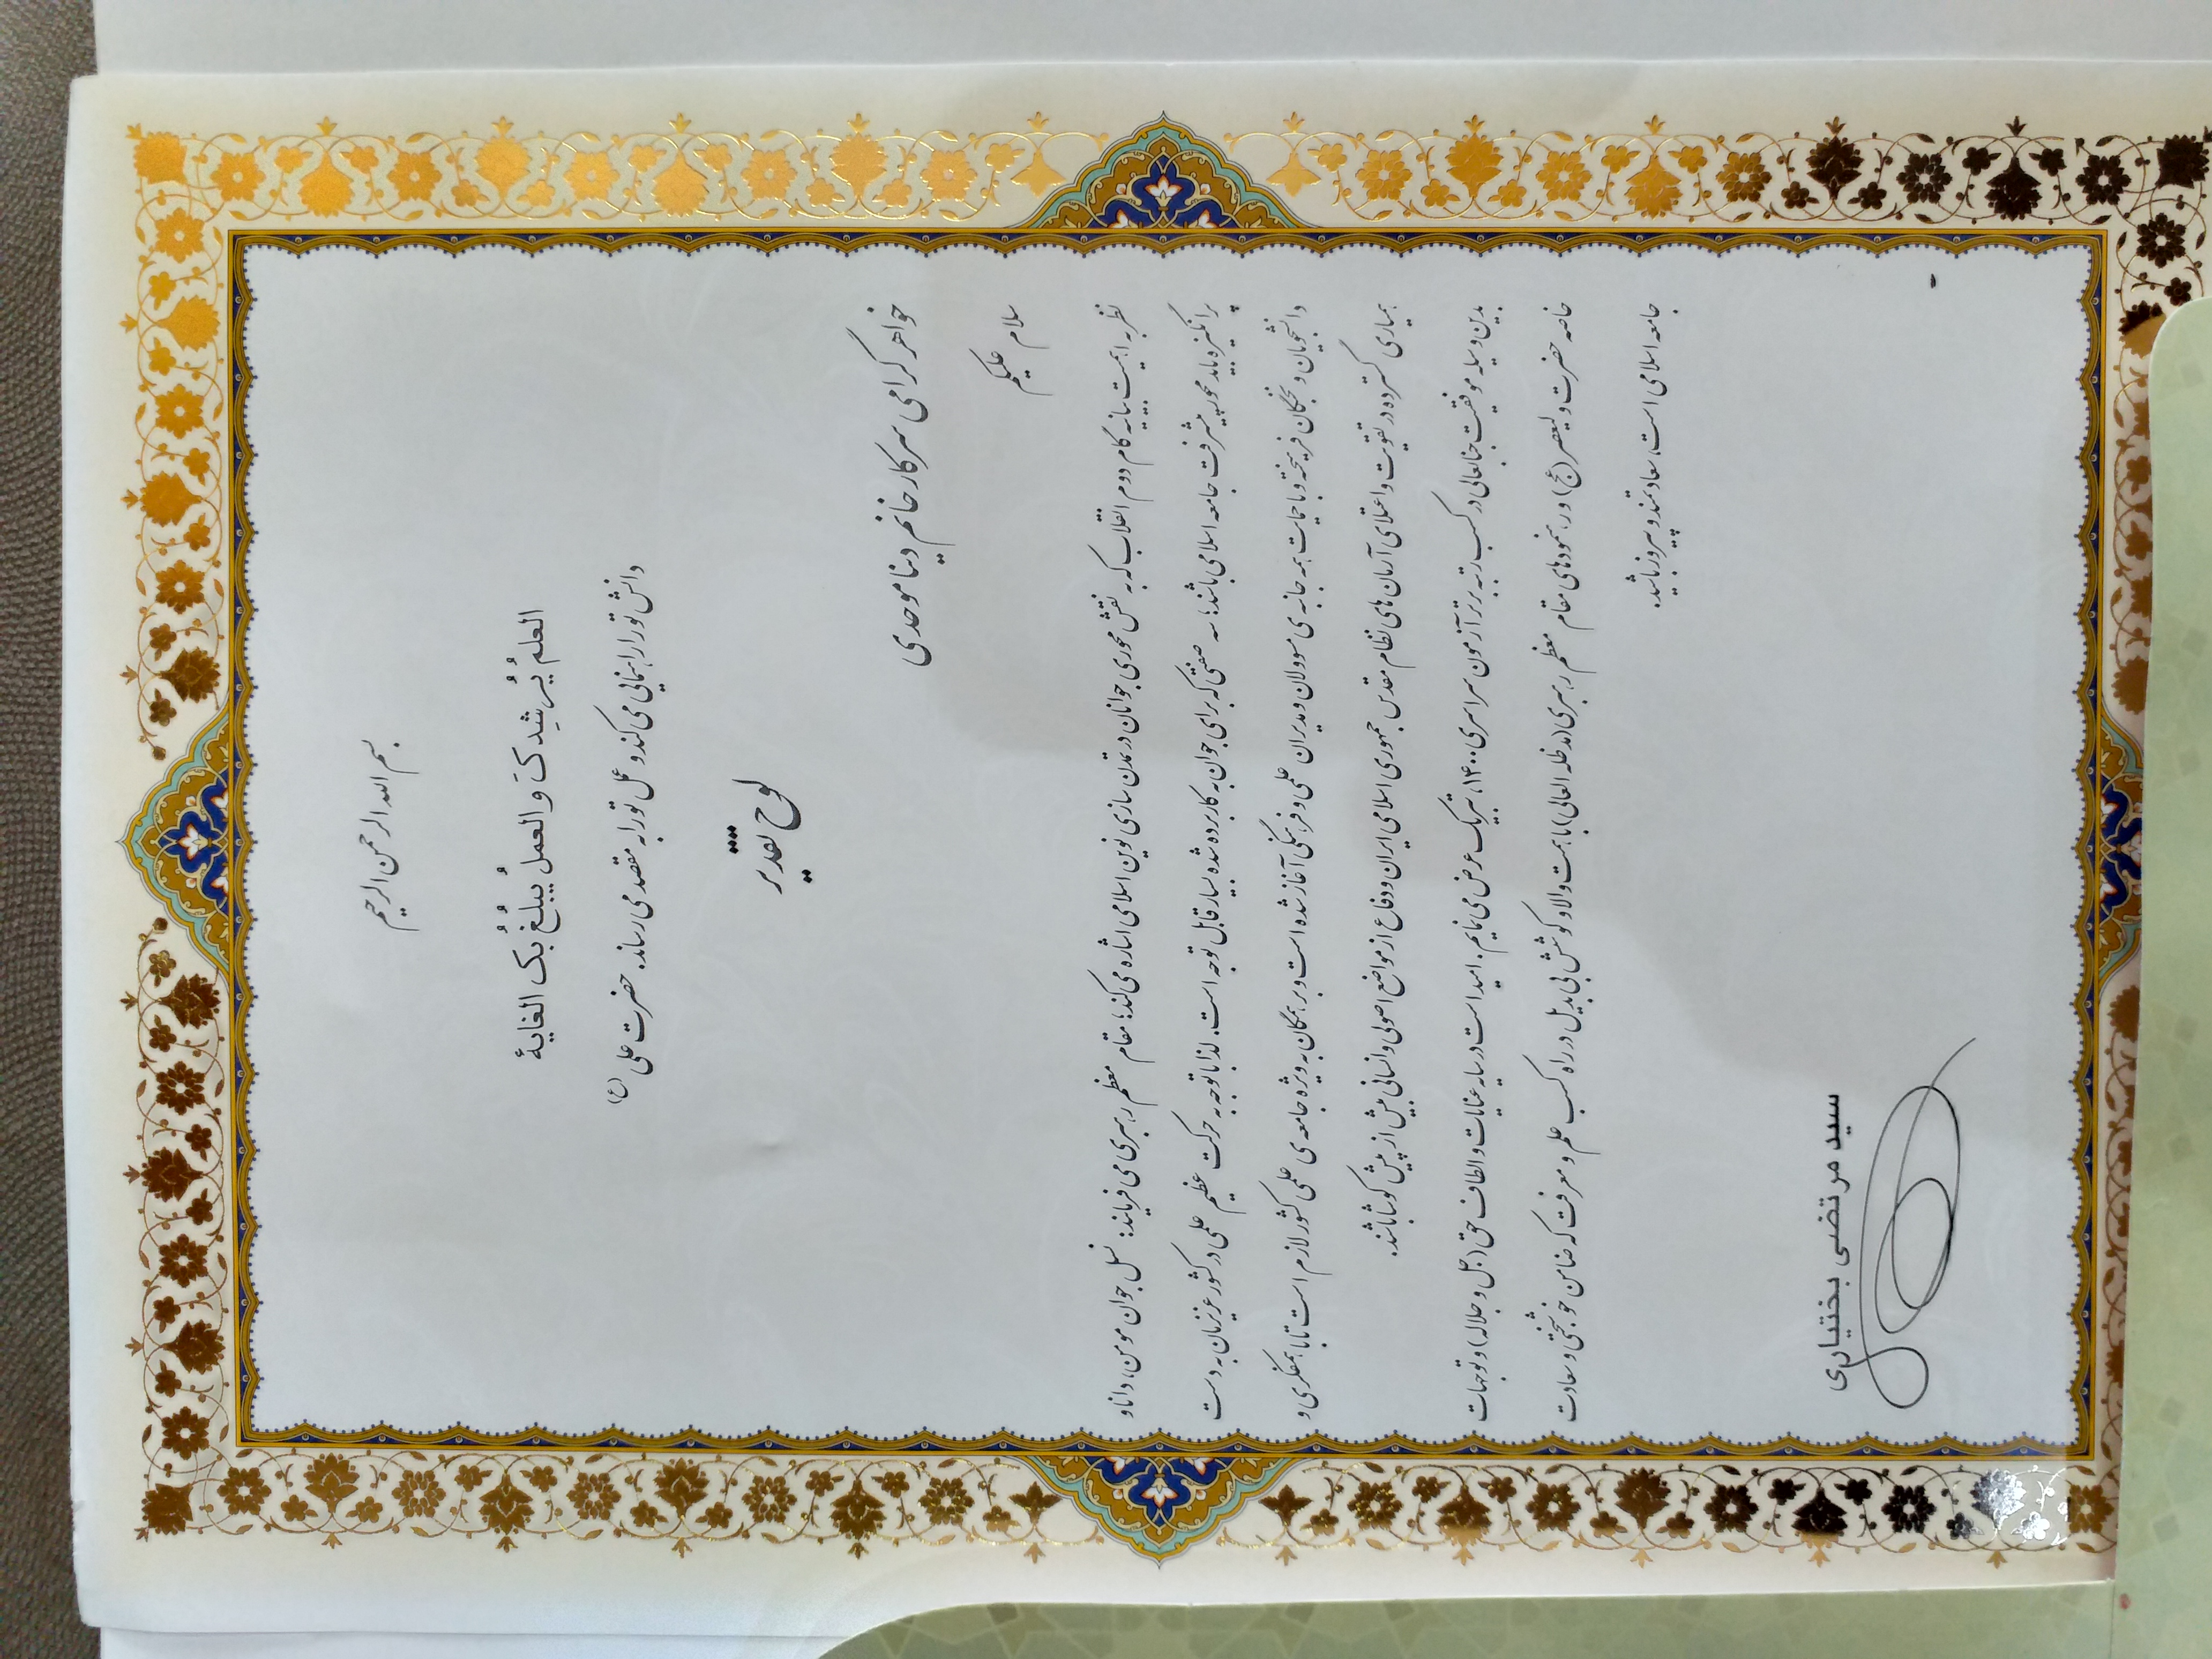 بسم الله الرحمن الرحیم
العلمُ یُرشِدکَ و العمل یُبلُغ بُک الغایة
دانش تو را راهنمایی می کند و عمل تو را به مقصد می رساند. حضرت علی (ع)
لوح تقدیر
خواهر گرامی سرکار خانم دینا موحدی
سلام علیکم
نظر به اهمیت بیانیه گام دوم انقلاب که به نقش محوری جوانان در تمدن سازی نوین اسلامی اشاره می کند؛ مقام معظم رهبری می فرمایند: نسل جوان مومن، دانا و
پرانگیزه باید محور پیشرفت جامعه اسلامی باشند؛ سه صفتی که برای جوان به کار برده شده بسیار قابل توجه است. لذا با توجه به حرکت عظیم علمی در کشور عزیزمان به دست
دانشجویان و نخبگان فرهیخته و با حمایت همه جانبه ی مسوولان و مدیران علمی و فرهنگی آغاز شده است و بر همگان به ویژه جامعه ی علمی کشور لازم است تا با همفکری و
همیاری گسترده در تقویت و اعتلای آرمان های نظام مقدس جمهوری اسلامی ایران و دفاع از مواضع اصولی و انسانی بیش از پیش کوشا باشند.
بدین وسیله موفقیت جنابعالی در کسب رتبه برتر آزمون سراسری ۱۴۰۰، تبریک عرض می نمایم. امید است در سایه عنایات و الطاف حق (جل و جلاله) و توجهات
خاصه حضرت ولیعصر (عج) و رهنمودهای مقام معظم رهبری (مدظله العالی) با همت والا و کوشش بی بدیل در راه کسب علم و معرفت که ضامن خوشبختی و سعادت
جامعه اسلامی است، سعادتمند و پیروز باشید.
سید مرتضی بختیاری